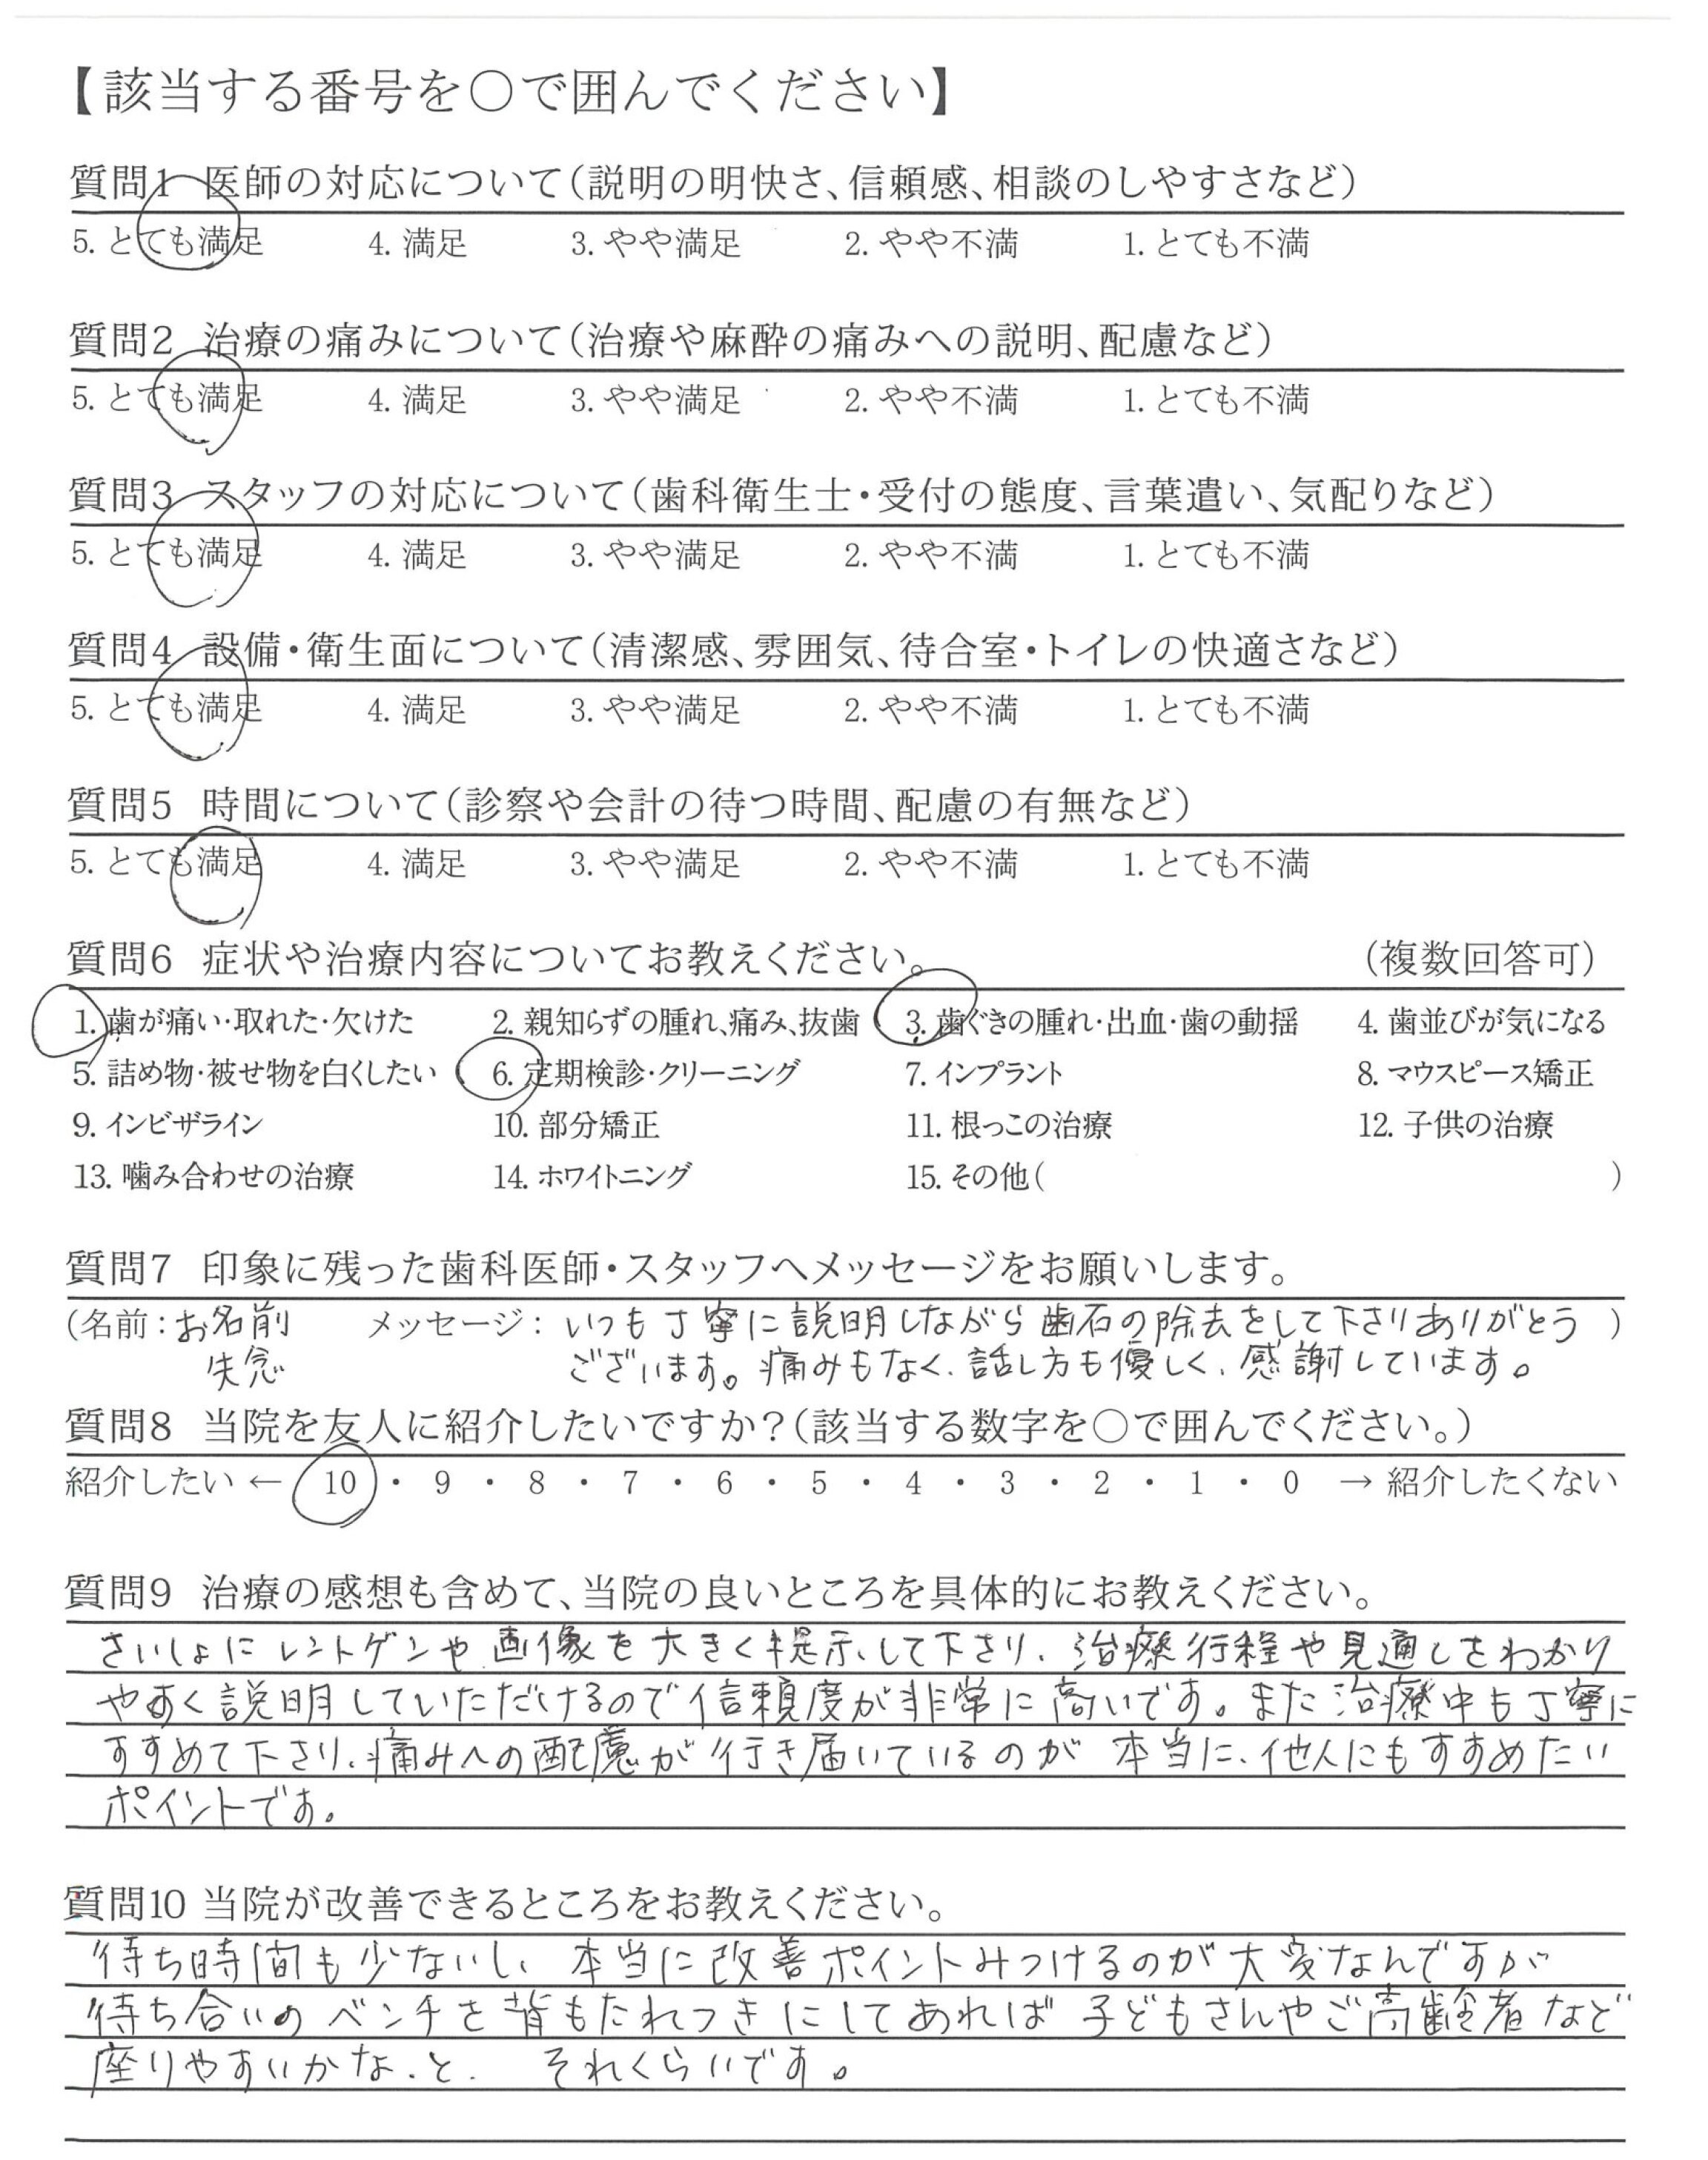 【該当する番号を〇で囲んでください】
質問1 医師の対応について（説明の明快さ、信頼感、相談のしやすさなど）
5. とても満足 4. 満足 3. やや満足 2. やや不満 1. とても不満
質問2 治療の痛みについて（治療や麻酔の痛みへの説明、配慮など）
5. とても満足 4. 満足 3. やや満足 2. やや不満 1. とても不満
質問3 スタッフの対応について（歯科衛生士・受付の態度、言葉遣い、気配りなど）
5. とても満足 4. 満足 3. やや満足 2. やや不満 1. とても不満
質問4 設備・衛生面について（清潔感、雰囲気、待合室・トイレの快適さなど）
5. とても満足 4. 満足 3. やや満足 2. やや不満 1. とても不満
質問5 時間について（診察や会計の待つ時間、配慮の有無など）
5. とても満足 4. 満足 3. やや満足 2. やや不満 1. とても不満
質問6 症状や治療内容についてお教えください。 （複数回答可）
1. 歯が痛い・取れた・欠けた 2. 親知らずの腫れ、痛み、抜歯 3. 歯ぐきの腫れ・出血・歯の動揺 4. 歯並びが気になる
5. 詰め物・被せ物を白くしたい 6. 定期検診・クリーニング 7. インプラント 8. マウスピース矯正
9. インビザライン 10. 部分矯正 11. 根っこの治療 12. 子供の治療
13. 噛み合わせの治療 14. ホワイトニング 15. その他（ ）
質問7 印象に残った歯科医師・スタッフへメッセージをお願いします。
（名前：お名前 メッセージ：いつも丁寧に説明しながら歯石の除去をして下さりありがとう ）
失念 ございます。痛みもなく、話し方も優しく、感謝しています。
質問8 当院を友人に紹介したいですか？（該当する数字を〇で囲んでください。）
紹介したい ← 10 ・ 9 ・ 8 ・ 7 ・ 6 ・ 5 ・ 4 ・ 3 ・ 2 ・ 1 ・ 0 → 紹介したくない
質問9 治療の感想も含めて、当院の良いところを具体的にお教えください。
さいしょにレントゲンや画像を大きく提示して下さり、治療行程や見通しをわかり
やすく説明していただけるので信頼度が非常に高いです。また治療中も丁寧に
すすめて下さり、痛みへの配慮が行き届いているのが本当に、他人にもすすめたい
ポイントです。
質問10 当院が改善できるところをお教えください。
待ち時間も少ないし、本当に改善ポイントみつけるのが大変なんですが
待ち合いのベンチを背もたれつきにしてあれば子どもさんやご高齢者など
座りやすいかな、と、 それくらいです。